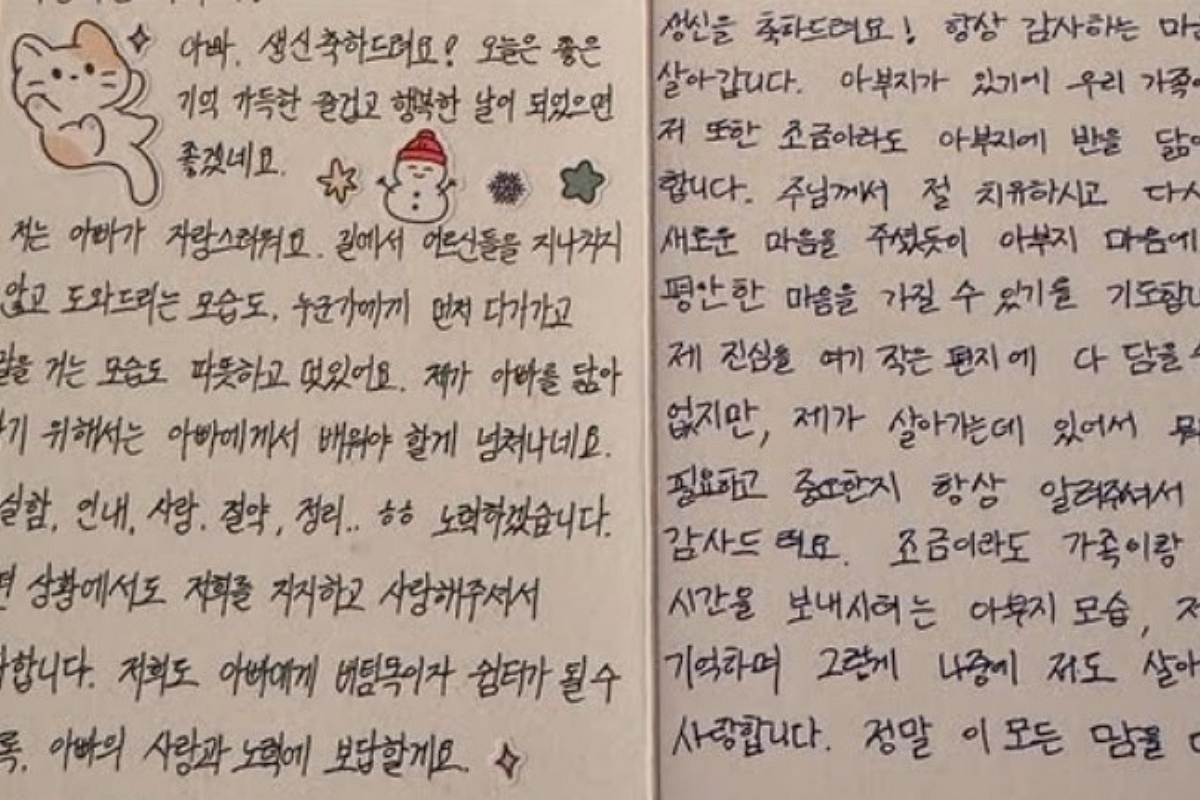 아빠. 생신축하드려요! 오늘은 좋은
기억 가득한 즐겁고 행복한 날이 되었으면
좋겠네요.
저는 아빠가 자랑스러워요. 길에서 어르신들을 지나치지
않고 도와드리는 모습도, 누군가에게 먼저 다가가고
말을 거는 모습도 따뜻하고 멋있어요. 제가 아빠를 닮아
가기 위해서는 아빠에게서 배워야 할게 넘쳐나네요.
실함, 인내, 사랑. 절약, 정리.. ㅎㅎ 노력하겠습니다.
상황에서도 저희를 지지하고 사랑해주셔서
합니다. 저희도 아빠에게 버팀목이자 쉼터가 될 수
록, 아빠의 사랑과 노력에 보답할게요.
생신을 축하드려요! 항상 감사하는
살아갑니다. 아부지가 있기에 우리
저 또한 조금이라도 아부지에 반을
합니다. 주님께서 절 치유하시고
새로운 마음을 주셨듯이 아부지 마음에
평안한 마음을 가질 수 있기를
제 진심을 여기 작은 편지에 다 담을
없지만, 제가 살아가는데 있어서
필요하고 중요한지 항상 알려주셔서
감사드려요. 조금이라도 가족이랑
시간을 보내시려는 아부지 모습,
기억하며 그렇게 나중에 저도
사랑합니다. 정말 이 모든 맘을